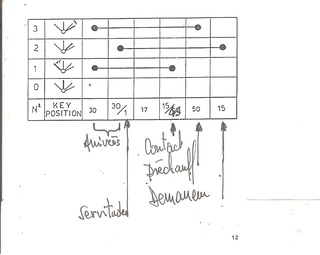 3
2
1
0
Nº KEY POSITION 30 30/1 17 15/ 50 15
Arrivées
Contact
Préchauff
Demarreur
Servitudes
12